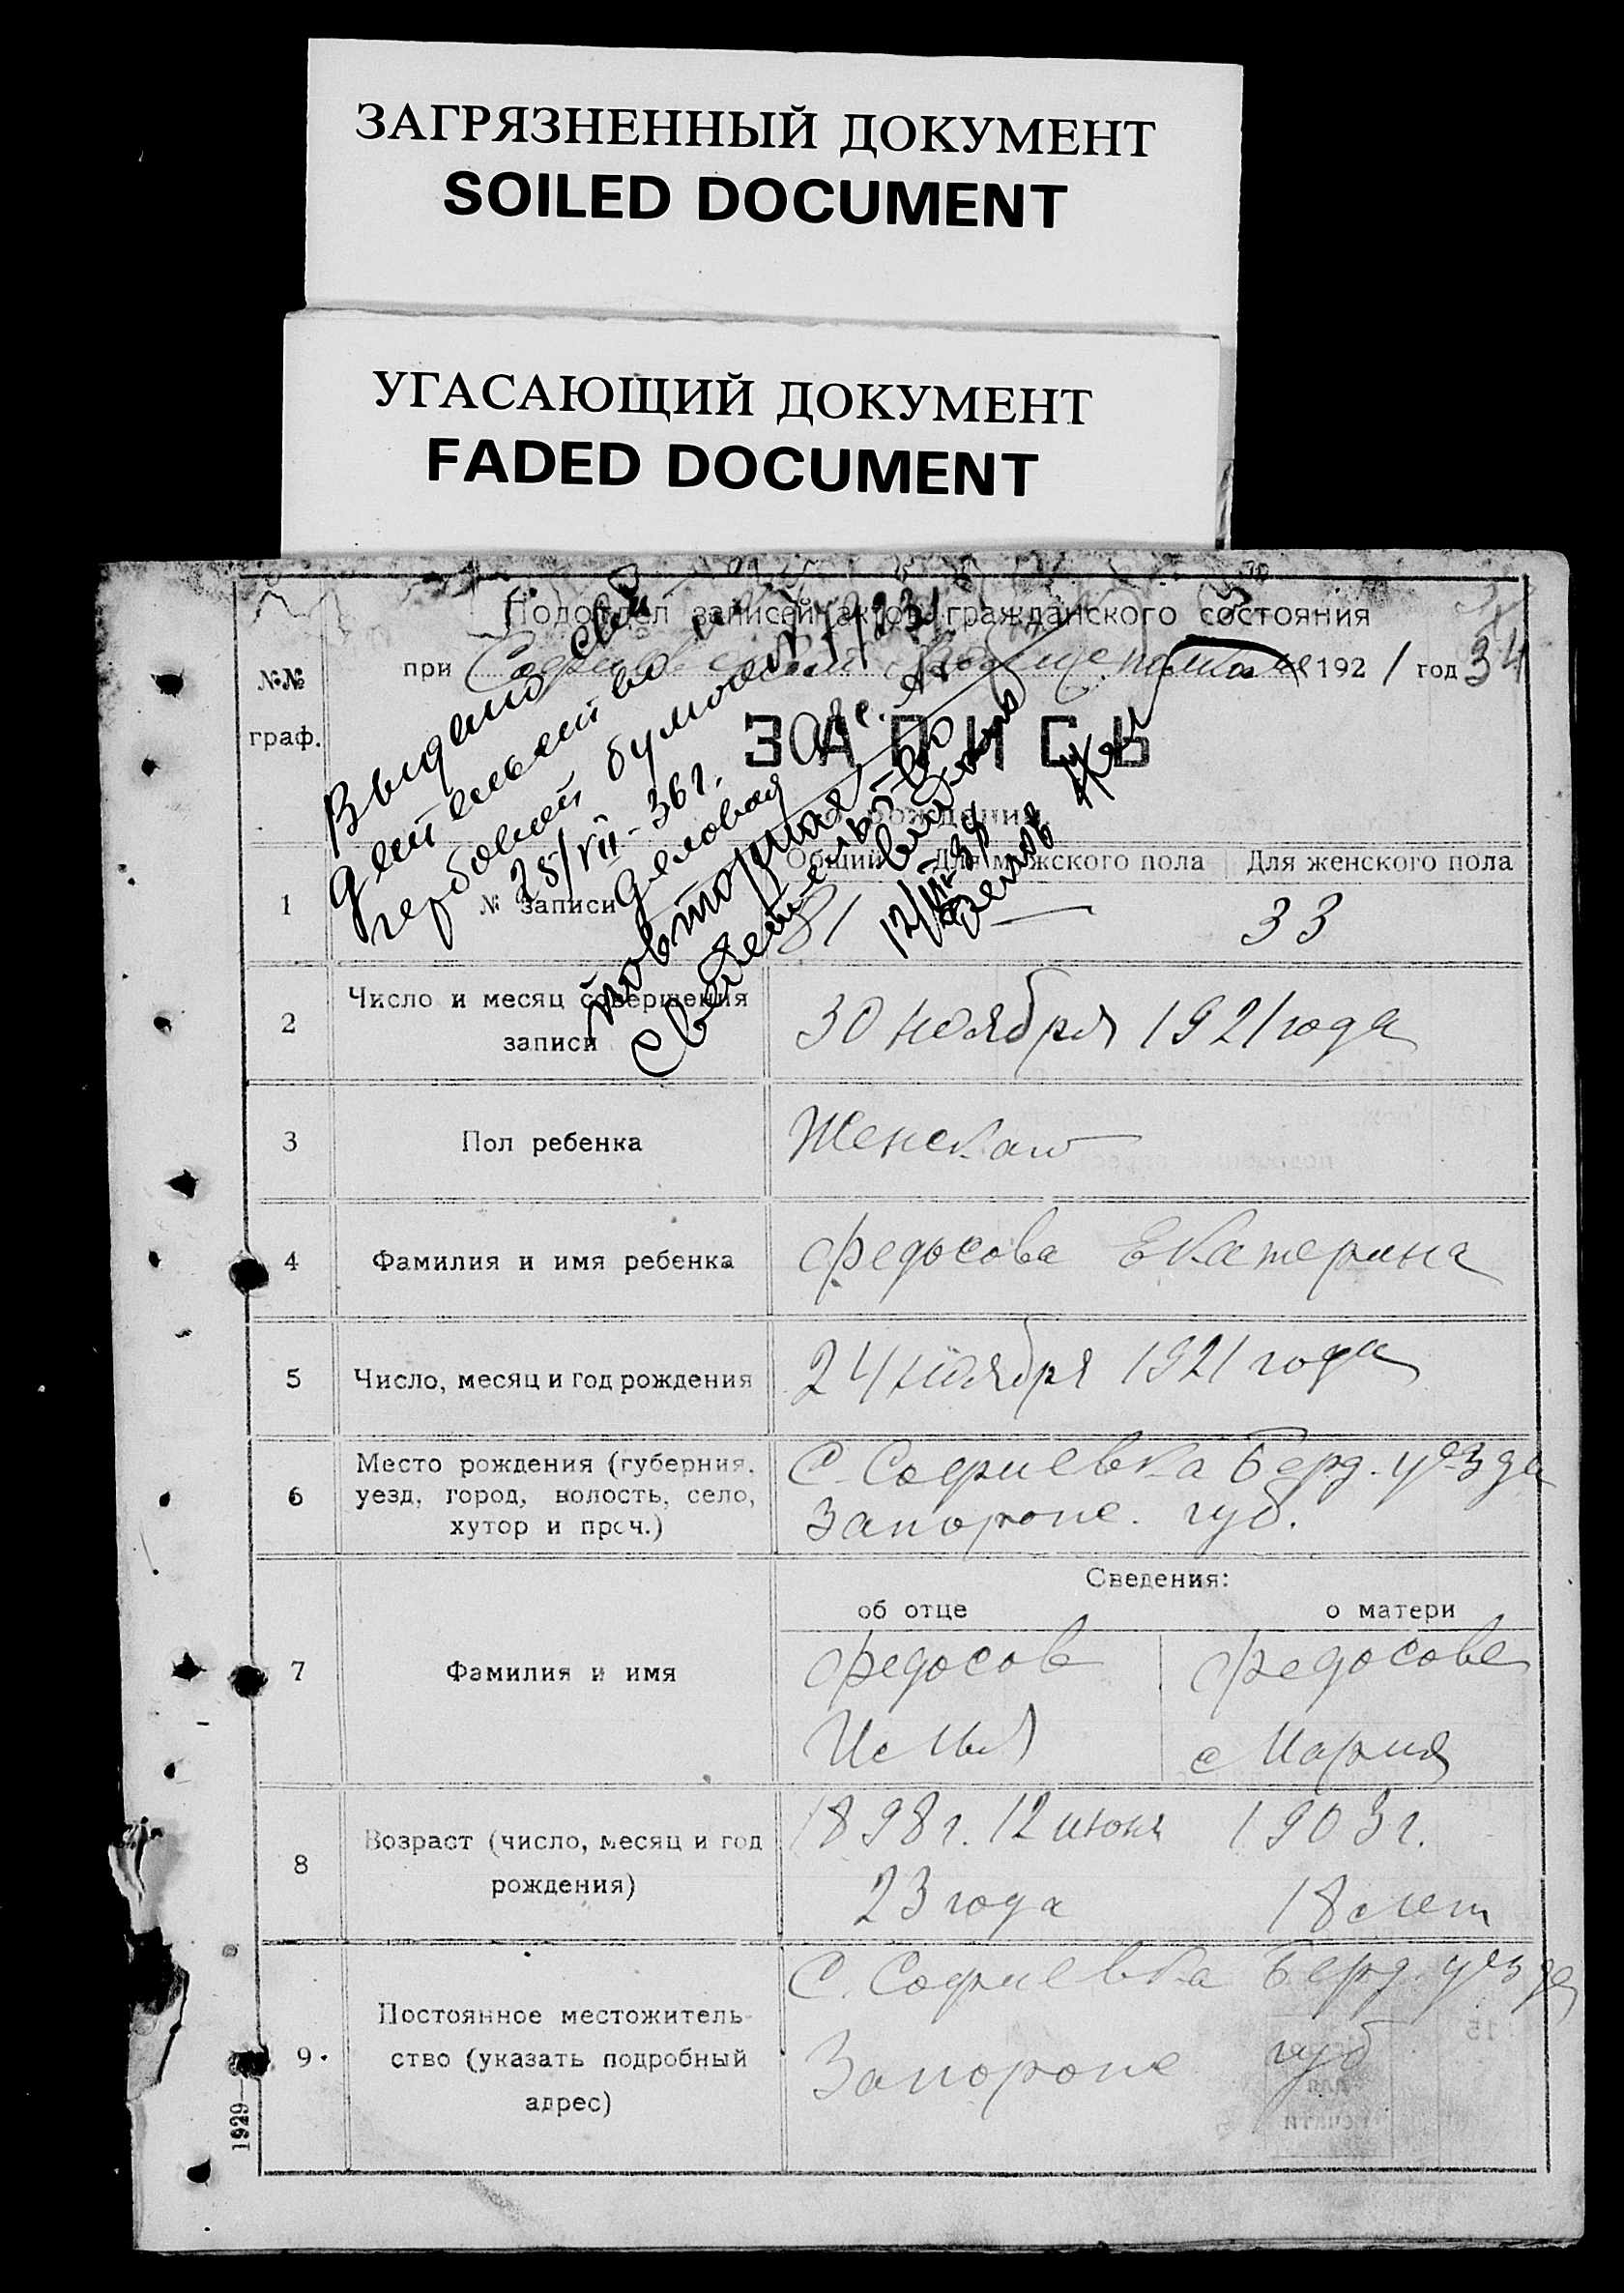 ЗАГРЯЗНЕННЫЙ ДОКУМЕНТ
SOILED DOCUMENT
УГАСАЮЩИЙ ДОКУМЕНТ
FADED DOCUMENT
Подотдел записей актов гражданского состояния
№№
граф.
при 192 1 год 34
ЗАПИСЬ
о рождении
Выдано сви
детельство
гербовой бумагой
25/VII-36г.
Деловод
повторная
Свидетельс-во
выдано
12/III-39
Общий Для мужского пола Для женского пола
1 № записи 81 — 33
2 Число и месяц совершения
записи
30 ноября 1921 года
3 Пол ребенка Женскаго
4 Фамилия и имя ребенка Федосова Екатерина
5 Число, месяц и год рождения 24 ноября 1921 года
6 Место рождения (губерния,
уезд, город, волость, село,
хутор и проч.)
С. Софиевка Берд. уезда
Запорож. губ.
Сведения:
об отце о матери
7 Фамилия и имя
Федосов Федосова
Илья Мария
8 Возраст (число, месяц и год
рождения)
1898 г. 12 июня 1903 г.
23 года 18 лет
9. Постоянное местожитель-
ство (указать подробный
адрес)
С. Софиевка Берд. уезда
Запорож губ
1929